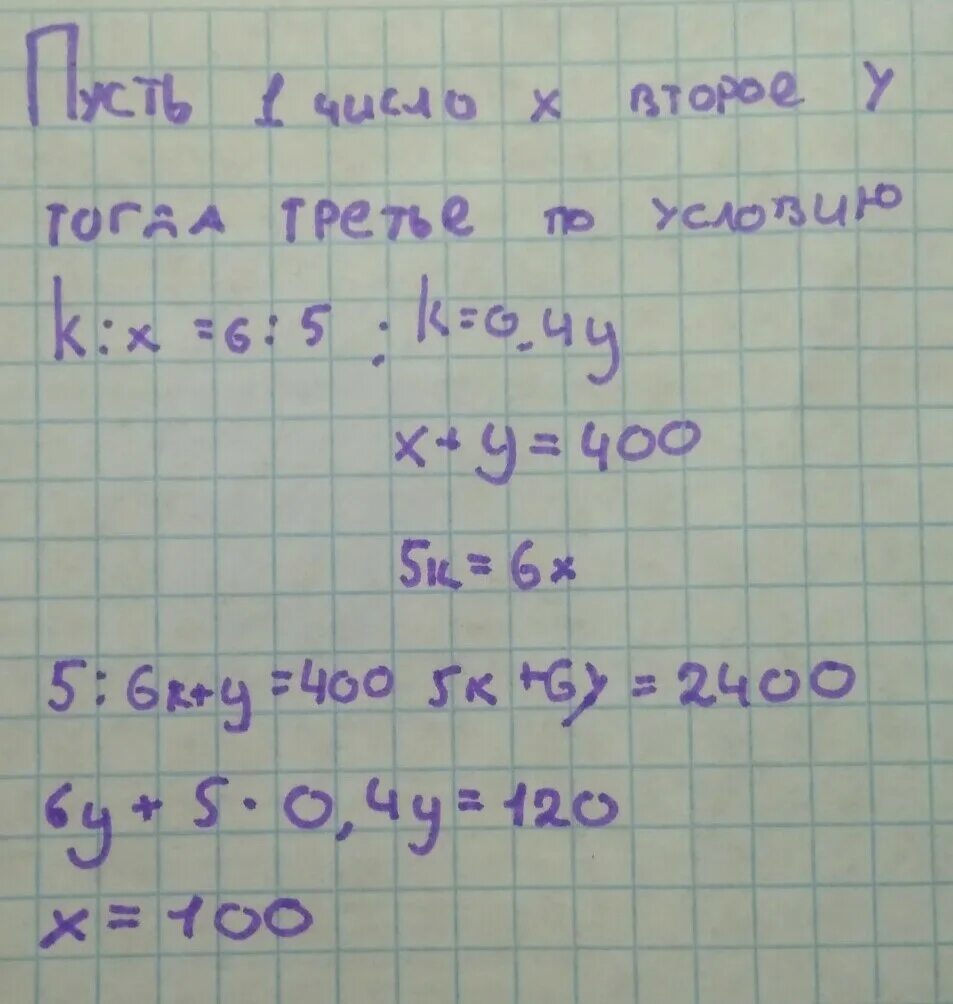 Пусть 1 число x второе y
тогда третье по условию
k:x = 6:5 ; k=0.4y
x+y=400
5k=6x
5:6k+y=400 5k+6y=2400
6y+5·0,4y=120
x=100